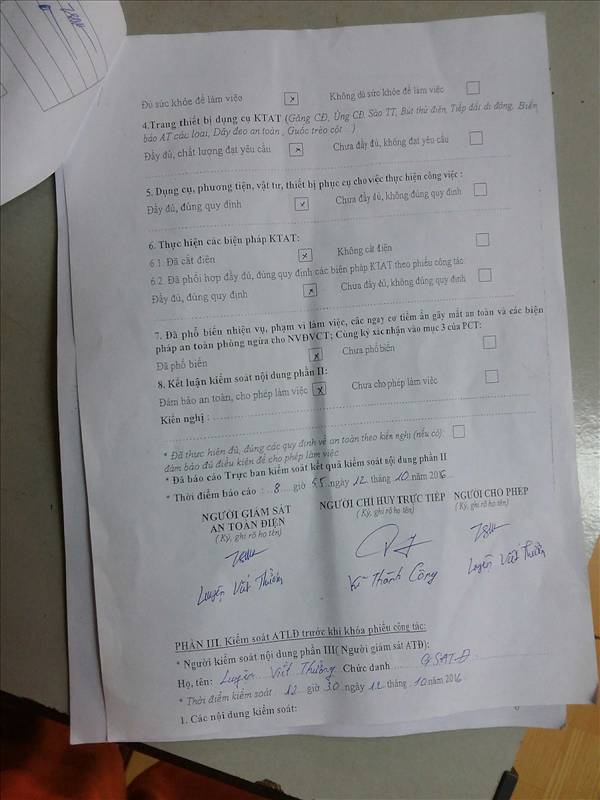 Đủ sức khỏe để làm việc x Không đủ sức khỏe để làm việc
4.Trang thiết bị dụng cụ KTAT (Găng CĐ, Ủng CĐ, Sào TT, Bút thử điện, Tiếp đất di động, Biển
báo AT các loại, Dây đeo an toàn , Guốc trèo cột...)
Đầy đủ, chất lượng đạt yêu cầu x Chưa đầy đủ, không đạt yêu cầu
5. Dụng cụ, phương tiện, vật tư, thiết bị phục cụ cho việc thực hiện công việc :
Đầy đủ, đúng quy định x Chưa đầy đủ, không đúng quy định
6. Thực hiện các biện pháp KTAT:
6.1. Đã cắt điện x Không cắt điện
6.2. Đã phối hợp đầy đủ, đúng quy định các biện pháp KTAT theo phiếu công tác:
Đầy đủ, đúng quy định x Chưa đầy đủ, không đúng quy định
7. Đã phổ biến nhiệm vụ, phạm vi làm việc, các nguy cơ tiềm ẩn gây mất an toàn và các biện
pháp an toàn phòng ngừa cho NVĐVCT; Cùng ký xác nhận vào mục 3 của PCT:
Đã phổ biến x Chưa phổ biến
8. Kết luận kiểm soát nội dung phần II:
Đảm bảo an toàn, cho phép làm việc x Chưa cho phép làm việc
Kiến nghị :
* Đã thực hiện đủ, đúng các quy định về an toàn theo kiến nghị (nếu có):
đảm bảo đủ điều kiện để cho phép làm việc
* Đã báo cáo Trực ban kiểm soát kết quả kiểm soát nội dung phần II
* Thời điểm báo cáo : 8 giờ 55 ngày 12 tháng 10 năm 2016
NGƯỜI GIÁM SÁT AN TOÀN ĐIỆN NGƯỜI CHỈ HUY TRỰC TIẾP NGƯỜI CHO PHÉP
(Ký, ghi rõ họ tên) (Ký, ghi rõ họ tên) (Ký, ghi rõ họ tên)
Luyện Viết Thưởng Thành Công Luyện Viết Thưởng
PHẦN III. Kiểm soát ATLĐ trước khi khóa phiếu công tác:
* Người kiểm soát nội dung phần III( Người giám sát ATĐ):
Họ, tên: Luyện Viết Thưởng Chức danh GSATĐ
* Thời điểm kiểm soát 12 giờ 30 ngày 12 tháng 10 năm 2016
1. Các nội dung kiểm soát: